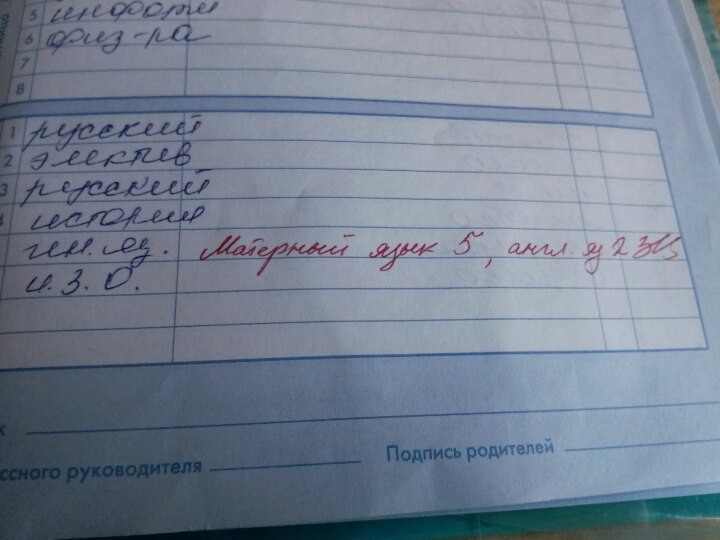 5 информ
6 физ-ра
7
8
1 русский
2 электив
3 русский
4 история
ин. яз. Матерный язык 5, англ. яз 2
и. З. О.
ссного руководителя
Подпись родителей